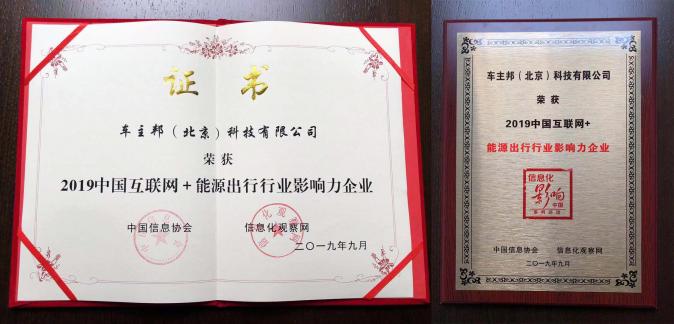 证书
车主邦（北京）科技有限公司
荣获
2019中国互联网+能源出行行业影响力企业
中国信息协会 信息化观察网
二〇一九年九月
车主邦（北京）科技有限公司
荣获
2019中国互联网+
能源出行行业影响力企业
信息化
影响
中国
中国信息协会 信息化观察网
二〇一九年九月